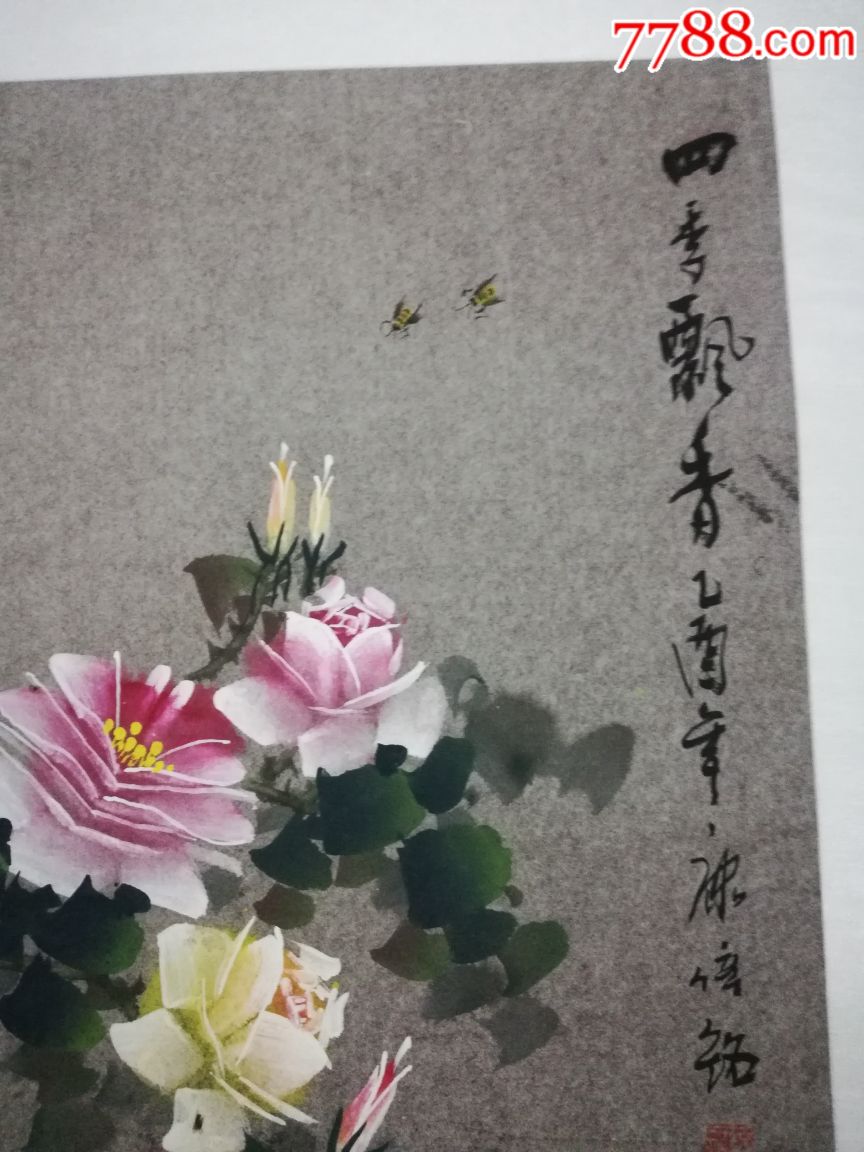 7788.com
四季飘香乙酉年、康倍铭